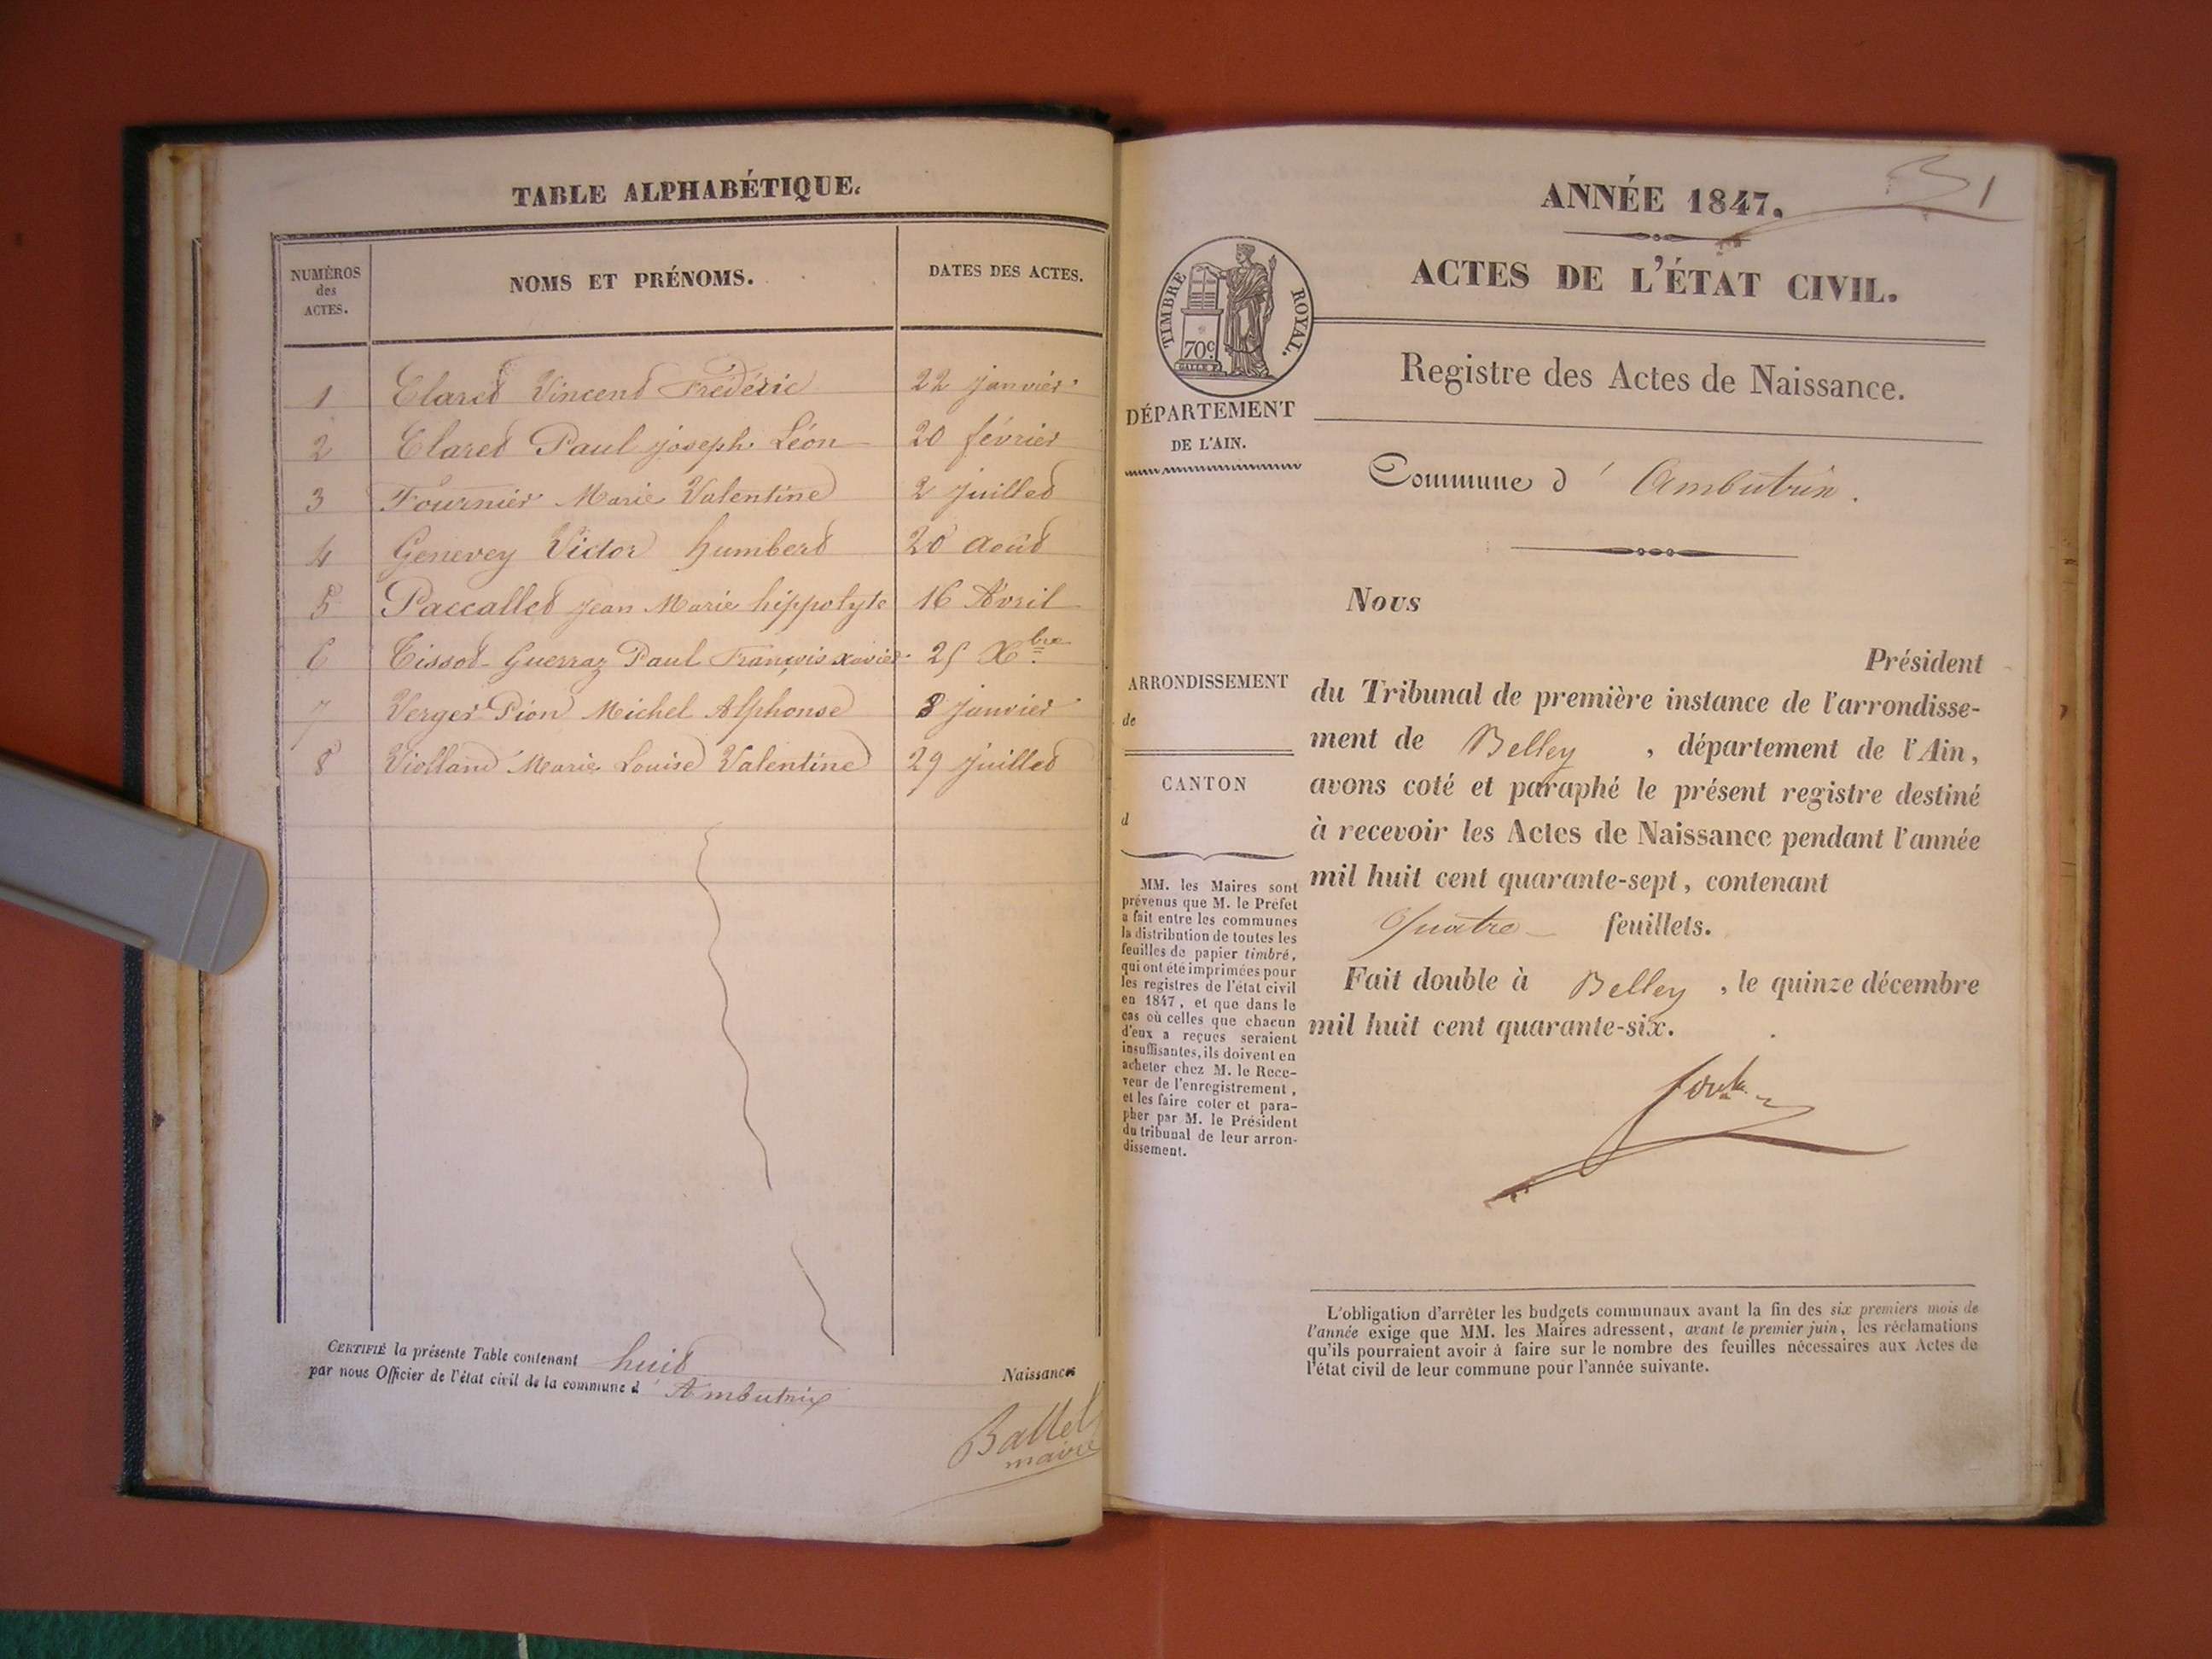 TABLE ALPHABÉTIQUE.
NUMÉROS des ACTES.
NOMS ET PRÉNOMS.
DATES DES ACTES.
1 Claret Vincent Frédéric 22 janvier
2 Claret Paul joseph Léon 20 février
3 Fournier Marie Valentine 2 juillet
4 Genevey Victor humbert 20 Août
5 Paccallet jean Marie hippolyte 16 Avril
6 Tissot-Guerraz Paul François xavier 25 Xbre
7 Verger Pion Michel Alphonse 8 janvier
8 Violland Marie Louise Valentine 29 juillet
CERTIFIÉ la présente Table contenant huit Naissances
par nous Officier de l'état civil de la commune d'Ambutrix
maire
1
ANNÉE 1847.
ACTES DE L'ÉTAT CIVIL.
TIMBRE ROYAL.
70c
Registre des Actes de Naissance.
DÉPARTEMENT
DE L'AIN.
Commune d'Ambutrix.
Nous
Président
du Tribunal de première instance de l'arrondisse-
ment de Belley, département de l'Ain,
avons coté et paraphé le présent registre destiné
à recevoir les Actes de Naissance pendant l'année
mil huit cent quarante-sept, contenant
quatre feuillets.
Fait double à Belley, le quinze décembre
mil huit cent quarante-six.
ARRONDISSEMENT
de
CANTON
d
MM. les Maires sont
prévenus que M. le Préfet
a fait entre les communes
la distribution de toutes les
feuilles de papier timbré,
qui ont été imprimées pour
les registres de l'état civil
en 1847, et que dans le
cas où celles que chacun
d'eux a reçues seraient
insuffisantes, ils doivent en
acheter chez M. le Rece-
veur de l'enregistrement,
et les faire coter et para-
pher par M. le Président
du tribunal de leur arron-
dissement.
L'obligation d'arrêter les budgets communaux avant la fin des six premiers mois de
l'année exige que MM. les Maires adressent, avant le premier juin, les réclamations
qu'ils pourraient avoir à faire sur le nombre des feuilles nécessaires aux Actes de
l'état civil de leur commune pour l'année suivante.